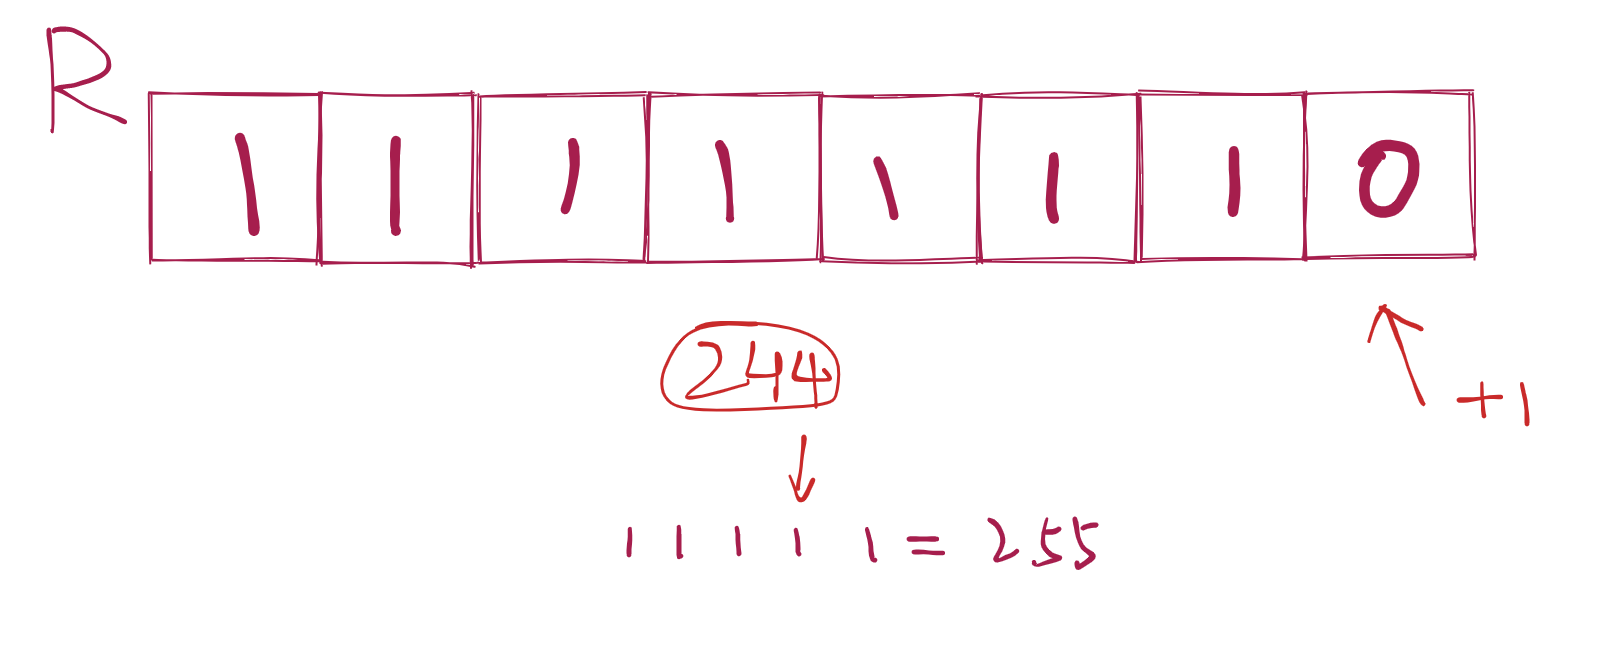 R
1 1 1 1 1 1 1 0
244
+1
1 1 1 1 1 = 255